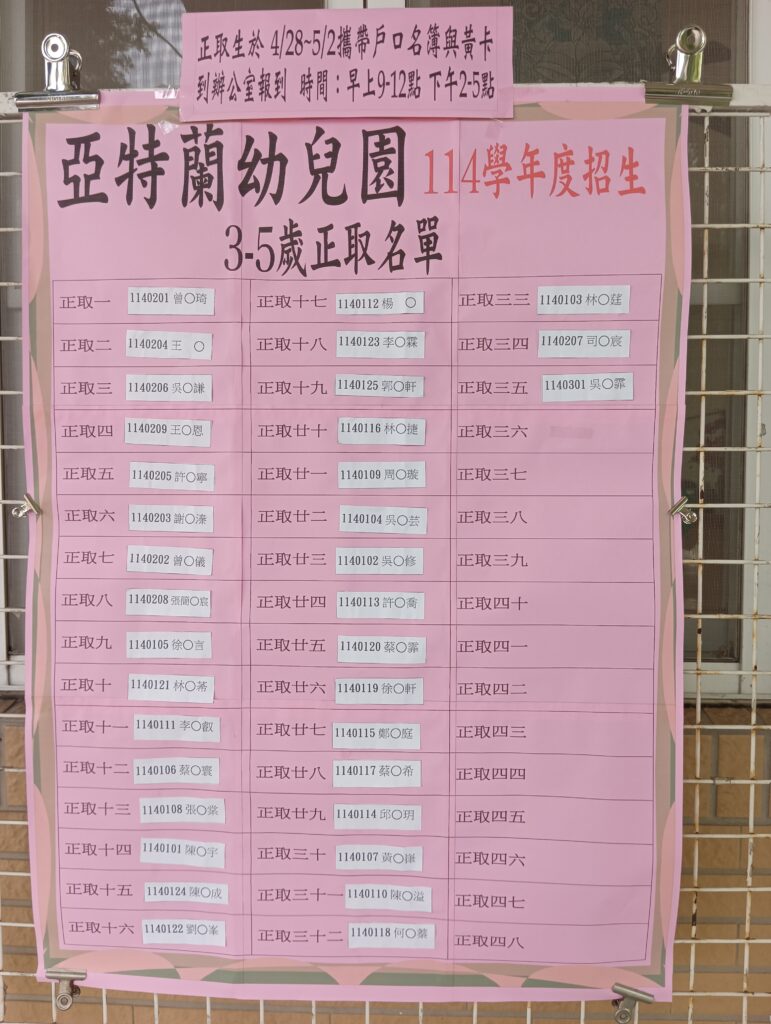 正取生於 4/28~5/2攜帶戶口名簿與黃卡
到辦公室報到 時間：早上9-12點 下午2-5點
亞特蘭幼兒園 114學年度招生
3-5歲正取名單
正取一 1140201 曾〇琦
正取二 1140204 王 〇
正取三 1140206 吳〇謙
正取四 1140209 王〇恩
正取五 1140205 許〇寧
正取六 1140203 謝〇溱
正取七 1140202 曾〇儀
正取八 1140208 張簡〇宸
正取九 1140105 徐〇言
正取十 1140121 林〇
正取十一 1140111 李〇叡
正取十二 1140106 蔡〇寰
正取十三 1140108 張〇棠
正取十四 1140101 陳〇宇
正取十五 1140124 陳〇成
正取十六 1140122 劉〇峯
正取十七 1140112 楊 〇
正取十八 1140123 李〇霖
正取十九 1140125 郭〇軒
正取廿十 1140116 林〇捷
正取廿一 1140109 周〇璇
正取廿二 1140104 吳〇芸
正取廿三 1140102 吳〇修
正取廿四 1140113 許〇喬
正取廿五 1140120 蔡〇霈
正取廿六 1140119 徐〇軒
正取廿七 1140115 鄭〇庭
正取廿八 1140117 蔡〇希
正取廿九 1140114 邱〇玥
正取三十 1140107 黃〇
正取三十一 1140110 陳〇溢
正取三十二 1140118 何〇
正取三三 1140103 林〇莛
正取三四 1140207 司〇宸
正取三五 1140301 吳〇霏
正取三六
正取三七
正取三八
正取三九
正取四十
正取四一
正取四二
正取四三
正取四四
正取四五
正取四六
正取四七
正取四八